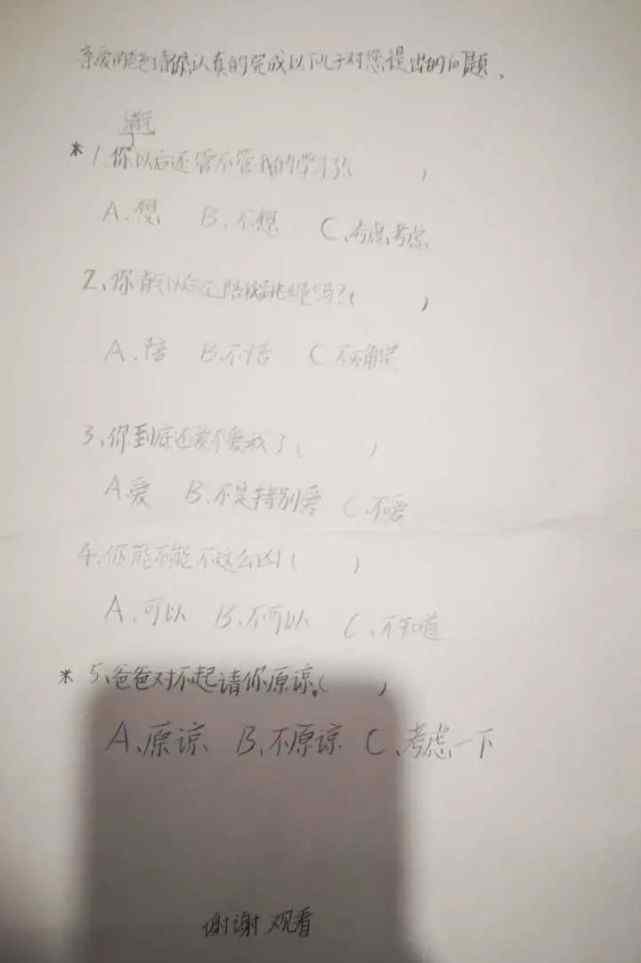 亲爱的爸爸请你认真的完成以下儿子对您提出的问题、
*1、你以后还管不管我的学习(  )
A、想 B、不想 C、考虑考虑
2、你能以后 陪 吗?(  )
A、陪 B、不陪 C、不确定
3、你到底还爱不爱我了(  )
A、爱 B、不是特别爱 C、不爱
4、你能不能不这么凶(  )
A、可以 B、不可以 C、不知道
*5、爸爸对不起请你原谅。(  )
A、原谅 B、不原谅 C、考虑一下
谢谢观看